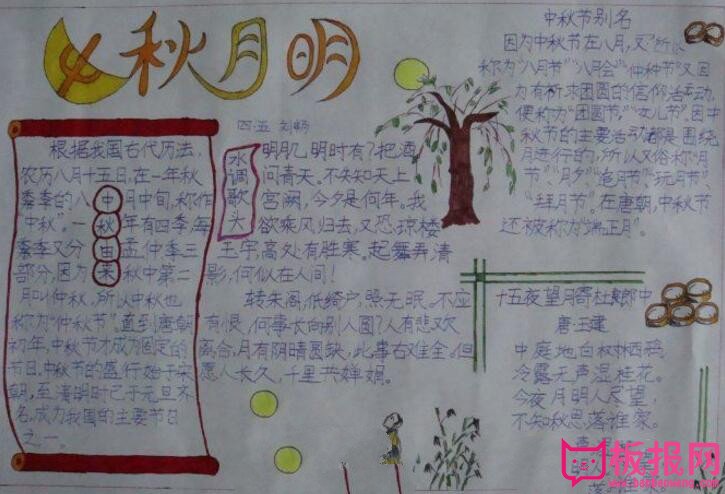 中秋月明
四.五 刘畅
根据我国古代历法,
农历八月十五日,在一年秋
季的八月中旬,称作
"中秋"。一年有四季,每
季又分孟仲季三
部分,因为秋中第二
月叫仲秋,所以中秋也
称为"仲秋节"。直到唐朝
初年,中秋节才成为固定的
节日,中秋节的盛行始于宋
朝,至清明时已于元旦齐
名,成为我国的主要节日
之一。
中秋由来
水调歌头
明月几明时有?把酒
问青天。不知知天上
宫阙,今夕是何年。我
欲乘风归去,又恐琼楼
玉宇,高处有胜寒。起舞弄清
影,何似在人间!
转朱阁,低绮户,照无眠。不应
有恨,何事长向别人圆?人有悲欢
离合,月有阴晴圆缺,此事古难全。但
愿人长久,千里共婵娟。
中秋节别名
因为中秋节在八月,又"所以
称为"八月节""八月会""仲秋节"又因
为有祈求团圆的信仰活动,
便称为"团圆节"、"女儿节"。因中
秋节的主要活动都是围绕
月进行的,所以又俗称"月
节"、"月夕"、"追月节"、"玩月节"、
"拜月节"。在唐朝,中秋节
还被称为"端正月"。
十五夜望月寄杜郎中
唐·王建
中庭地白树栖鸦,
冷露无声湿桂花。
今夜月明人尽望,
不知秋思落谁家。
板报网
www.banbaowang.com